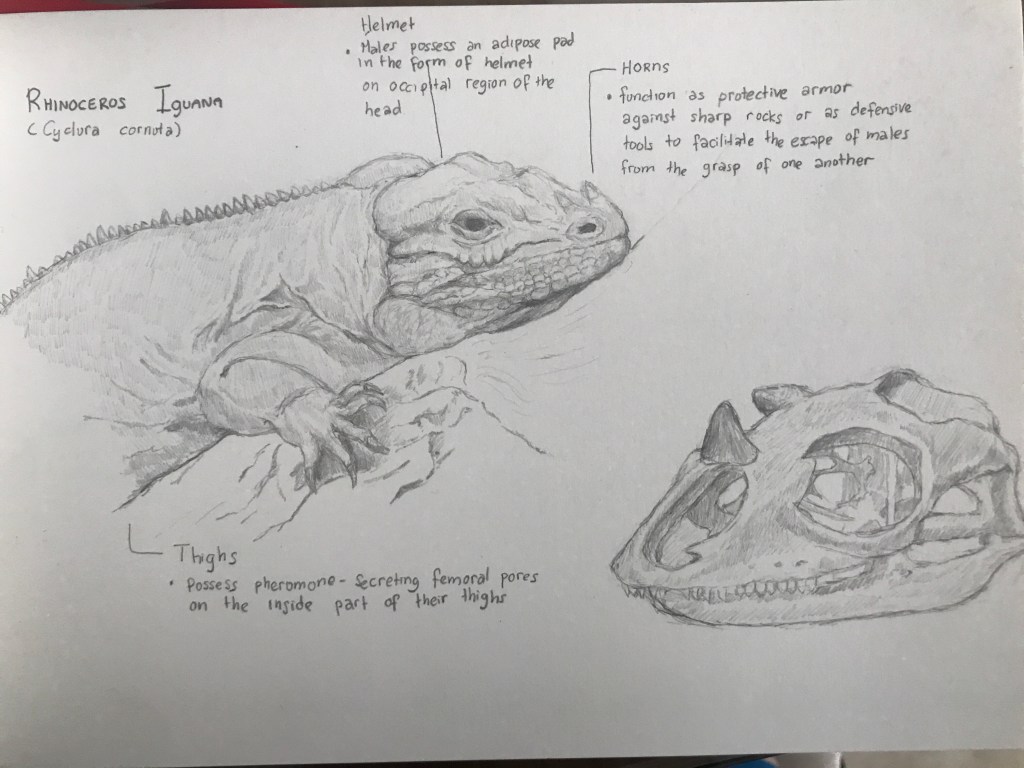 RHINOCEROS IGUANA
(Cyclura cornuta)
Helmet
• Males possess an adipose pad
in the form of helmet
on occipital region of the
head
HORNS
• function as protective armor
against sharp rocks or as defensive
tools to facilitate the escape of males
from the grasp of one another
Thighs
• Possess pheromone-secreting femoral pores
on the inside part of their thighs